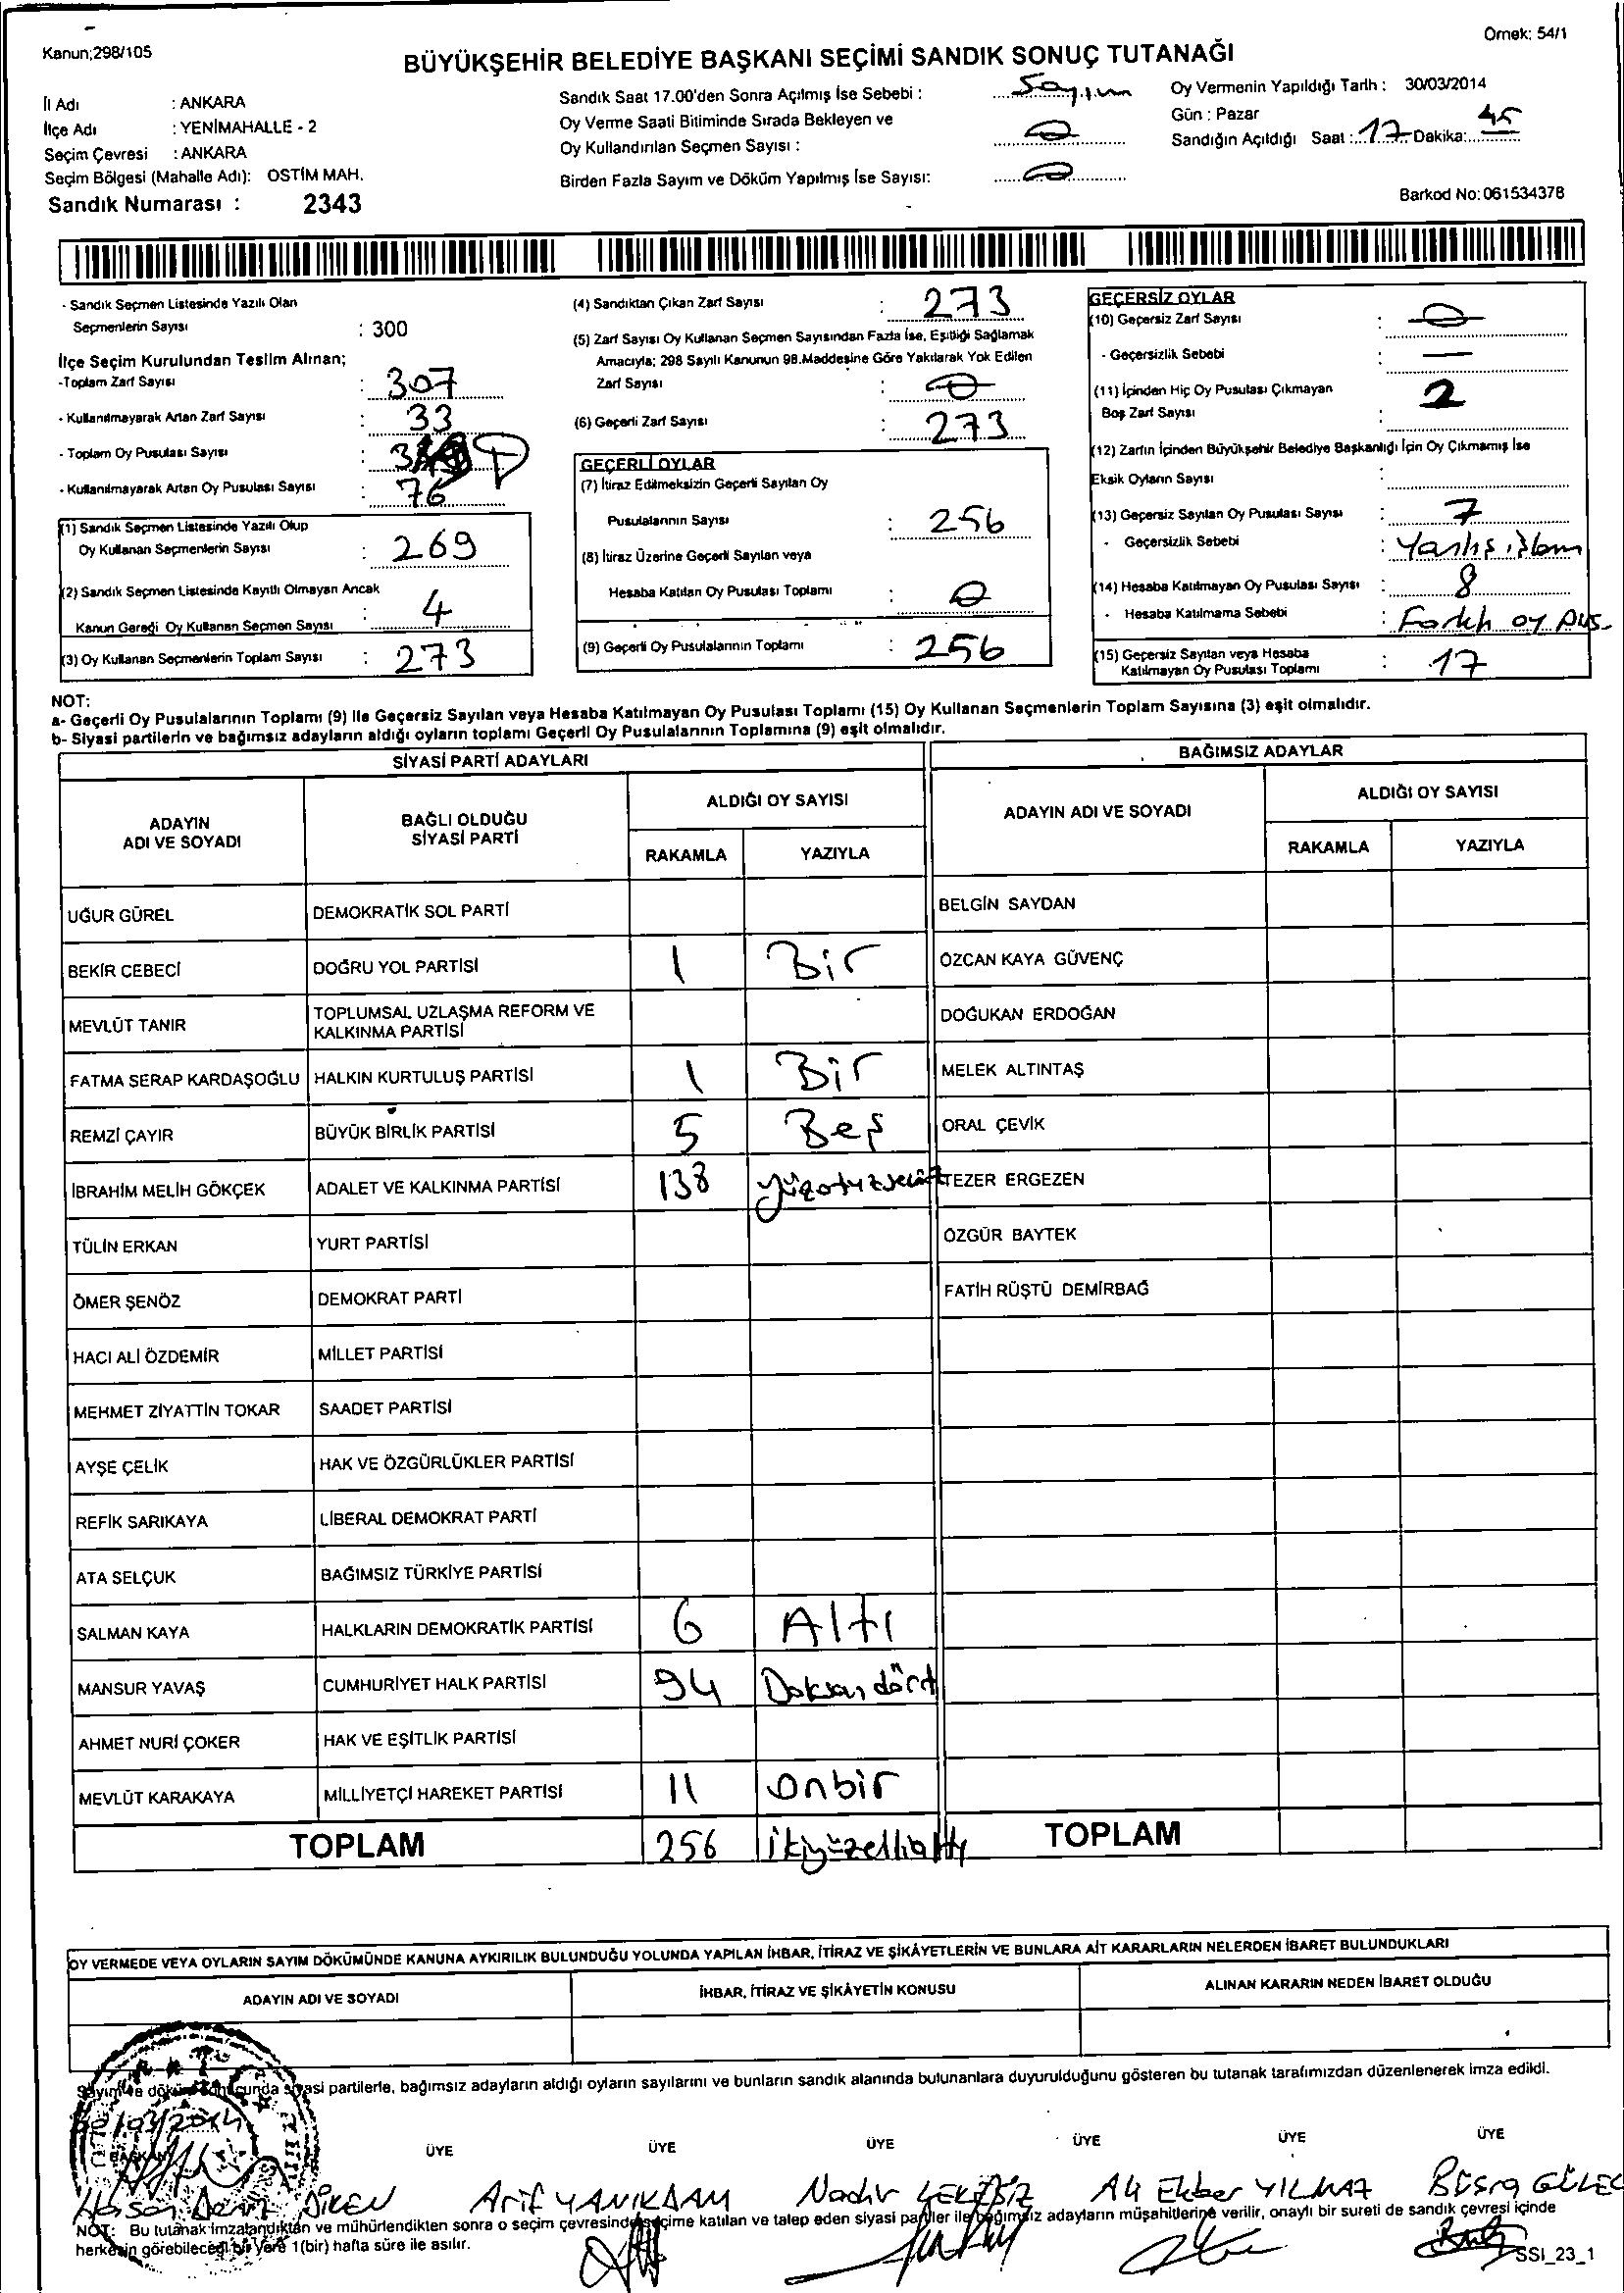 Kanun;298/105
Örnek: 54/1
BÜYÜKŞEHİR BELEDİYE BAŞKANI SEÇİMİ SANDIK SONUÇ TUTANAĞI
İl Adı : ANKARA
İlçe Adı : YENİMAHALLE - 2
Seçim Çevresi : ANKARA
Seçim Bölgesi (Mahalle Adı): OSTİM MAH.
Sandık Numarası : 2343
Sandık Saat 17.00'den Sonra Açılmış İse Sebebi : Sayım
Oy Verme Saati Bitiminde Sırada Bekleyen ve
Oy Kullandırılan Seçmen Sayısı : 0
Birden Fazla Sayım ve Döküm Yapılmış İse Sayısı: 0
Oy Vermenin Yapıldığı Tarih : 30/03/2014
Gün : Pazar
Sandığın Açıldığı Saat : 17 Dakika: 45
Barkod No: 061534378
- Sandık Seçmen Listesinde Yazılı Olan
Seçmenlerin Sayısı : 300
İlçe Seçim Kurulundan Teslim Alınan;
-Toplam Zarf Sayısı : 307
- Kullanılmayarak Artan Zarf Sayısı : 33
- Toplam Oy Pusulası Sayısı :
- Kullanılmayarak Artan Oy Pusulası Sayısı : 76
(1) Sandık Seçmen Listesinde Yazılı Olup
Oy Kullanan Seçmenlerin Sayısı : 269
(2) Sandık Seçmen Listesinde Kayıtlı Olmayan Ancak
Kanun Gereği Oy Kullanan Seçmen Sayısı : 4
(3) Oy Kullanan Seçmenlerin Toplam Sayısı : 273
(4) Sandıktan Çıkan Zarf Sayısı : 273
(5) Zarf Sayısı Oy Kullanan Seçmen Sayısından Fazla İse, Eşitliği Sağlamak
Amacıyla; 298 Sayılı Kanunun 98.Maddesine Göre Yakılarak Yok Edilen
Zarf Sayısı : 0
(6) Geçerli Zarf Sayısı : 273
GEÇERLİ OYLAR
(7) İtiraz Edilmeksizin Geçerli Sayılan Oy
Pusulalarının Sayısı : 256
(8) İtiraz Üzerine Geçerli Sayılan veya
Hesaba Katılan Oy Pusulası Toplamı : 0
(9) Geçerli Oy Pusulalarının Toplamı : 256
GEÇERSİZ OYLAR
(10) Geçersiz Zarf Sayısı : 0
- Geçersizlik Sebebi : —
(11) İçinden Hiç Oy Pusulası Çıkmayan
Boş Zarf Sayısı : 2
(12) Zarfın İçinden Büyükşehir Belediye Başkanlığı İçin Oy Çıkmamış İse
Eksik Oyların Sayısı :
(13) Geçersiz Sayılan Oy Pusulası Sayısı : 7
- Geçersizlik Sebebi : Yanlış işlem
(14) Hesaba Katılmayan Oy Pusulası Sayısı : 8
- Hesaba Katılmama Sebebi : Farklı oy pus.
(15) Geçersiz Sayılan veya Hesaba
Katılmayan Oy Pusulası Toplamı : 17
NOT:
a- Geçerli Oy Pusulalarının Toplamı (9) İle Geçersiz Sayılan veya Hesaba Katılmayan Oy Pusulası Toplamı (15) Oy Kullanan Seçmenlerin Toplam Sayısına (3) eşit olmalıdır.
b- Siyasi partilerin ve bağımsız adayların aldığı oyların toplamı Geçerli Oy Pusulalarının Toplamına (9) eşit olmalıdır.
SİYASİ PARTİ ADAYLARI
BAĞIMSIZ ADAYLAR
ADAYIN
ADI VE SOYADI
BAĞLI OLDUĞU
SİYASİ PARTİ
ALDIĞI OY SAYISI
RAKAMLA YAZIYLA
ADAYIN ADI VE SOYADI
ALDIĞI OY SAYISI
RAKAMLA YAZIYLA
UĞUR GÜREL DEMOKRATİK SOL PARTİ BELGİN SAYDAN
BEKİR CEBECİ DOĞRU YOL PARTİSİ 1 Bir ÖZCAN KAYA GÜVENÇ
MEVLÜT TANIR TOPLUMSAL UZLAŞMA REFORM VE
KALKINMA PARTİSİ DOĞUKAN ERDOĞAN
FATMA SERAP KARDAŞOĞLU HALKIN KURTULUŞ PARTİSİ 1 Bir MELEK ALTINTAŞ
REMZİ ÇAYIR BÜYÜK BİRLİK PARTİSİ 5 Beş ORAL ÇEVİK
İBRAHİM MELİH GÖKÇEK ADALET VE KALKINMA PARTİSİ 138 yüzotuzsekiz TEZER ERGEZEN
TÜLİN ERKAN YURT PARTİSİ ÖZGÜR BAYTEK
ÖMER ŞENÖZ DEMOKRAT PARTİ FATİH RÜŞTÜ DEMİRBAĞ
HACI ALİ ÖZDEMİR MİLLET PARTİSİ
MEHMET ZİYATTİN TOKAR SAADET PARTİSİ
AYŞE ÇELİK HAK VE ÖZGÜRLÜKLER PARTİSİ
REFİK SARIKAYA LİBERAL DEMOKRAT PARTİ
ATA SELÇUK BAĞIMSIZ TÜRKİYE PARTİSİ
SALMAN KAYA HALKLARIN DEMOKRATİK PARTİSİ 6 Altı
MANSUR YAVAŞ CUMHURİYET HALK PARTİSİ 94 Doksandört
AHMET NURİ ÇOKER HAK VE EŞİTLİK PARTİSİ
MEVLÜT KARAKAYA MİLLİYETÇİ HAREKET PARTİSİ 11 Onbir
TOPLAM 256 ikiyüzellialtı TOPLAM
OY VERMEDE VEYA OYLARIN SAYIM DÖKÜMÜNDE KANUNA AYKIRILIK BULUNDUĞU YOLUNDA YAPILAN İHBAR, İTİRAZ VE ŞİKÂYETLERİN VE BUNLARA AİT KARARLARIN NELERDEN İBARET BULUNDUKLARI
ADAYIN ADI VE SOYADI İHBAR, İTİRAZ VE ŞİKÂYETİN KONUSU ALINAN KARARIN NEDEN İBARET OLDUĞU
Sayım ve döküm sonucunda siyasi partilerle, bağımsız adayların aldığı oyların sayılarını ve bunların sandık alanında bulunanlara duyurulduğunu gösteren bu tutanak tarafımızdan düzenlenerek imza edildi.
30/03/2014
BAŞKAN ÜYE ÜYE ÜYE ÜYE ÜYE ÜYE
Hasan Deniz DİKEN Arif YANIKDAM Nadir Ali Ekber YILMAZ Büşra GÜLEÇ
NOT: Bu tutanak imzalandıktan ve mühürlendikten sonra o seçim çevresinde seçime katılan ve talep eden siyasi partiler ile bağımsız adayların müşahitlerine verilir, onaylı bir sureti de sandık çevresi içinde
herkesin görebileceği bir yere 1(bir) hafta süre ile asılır.
SSI_23_1